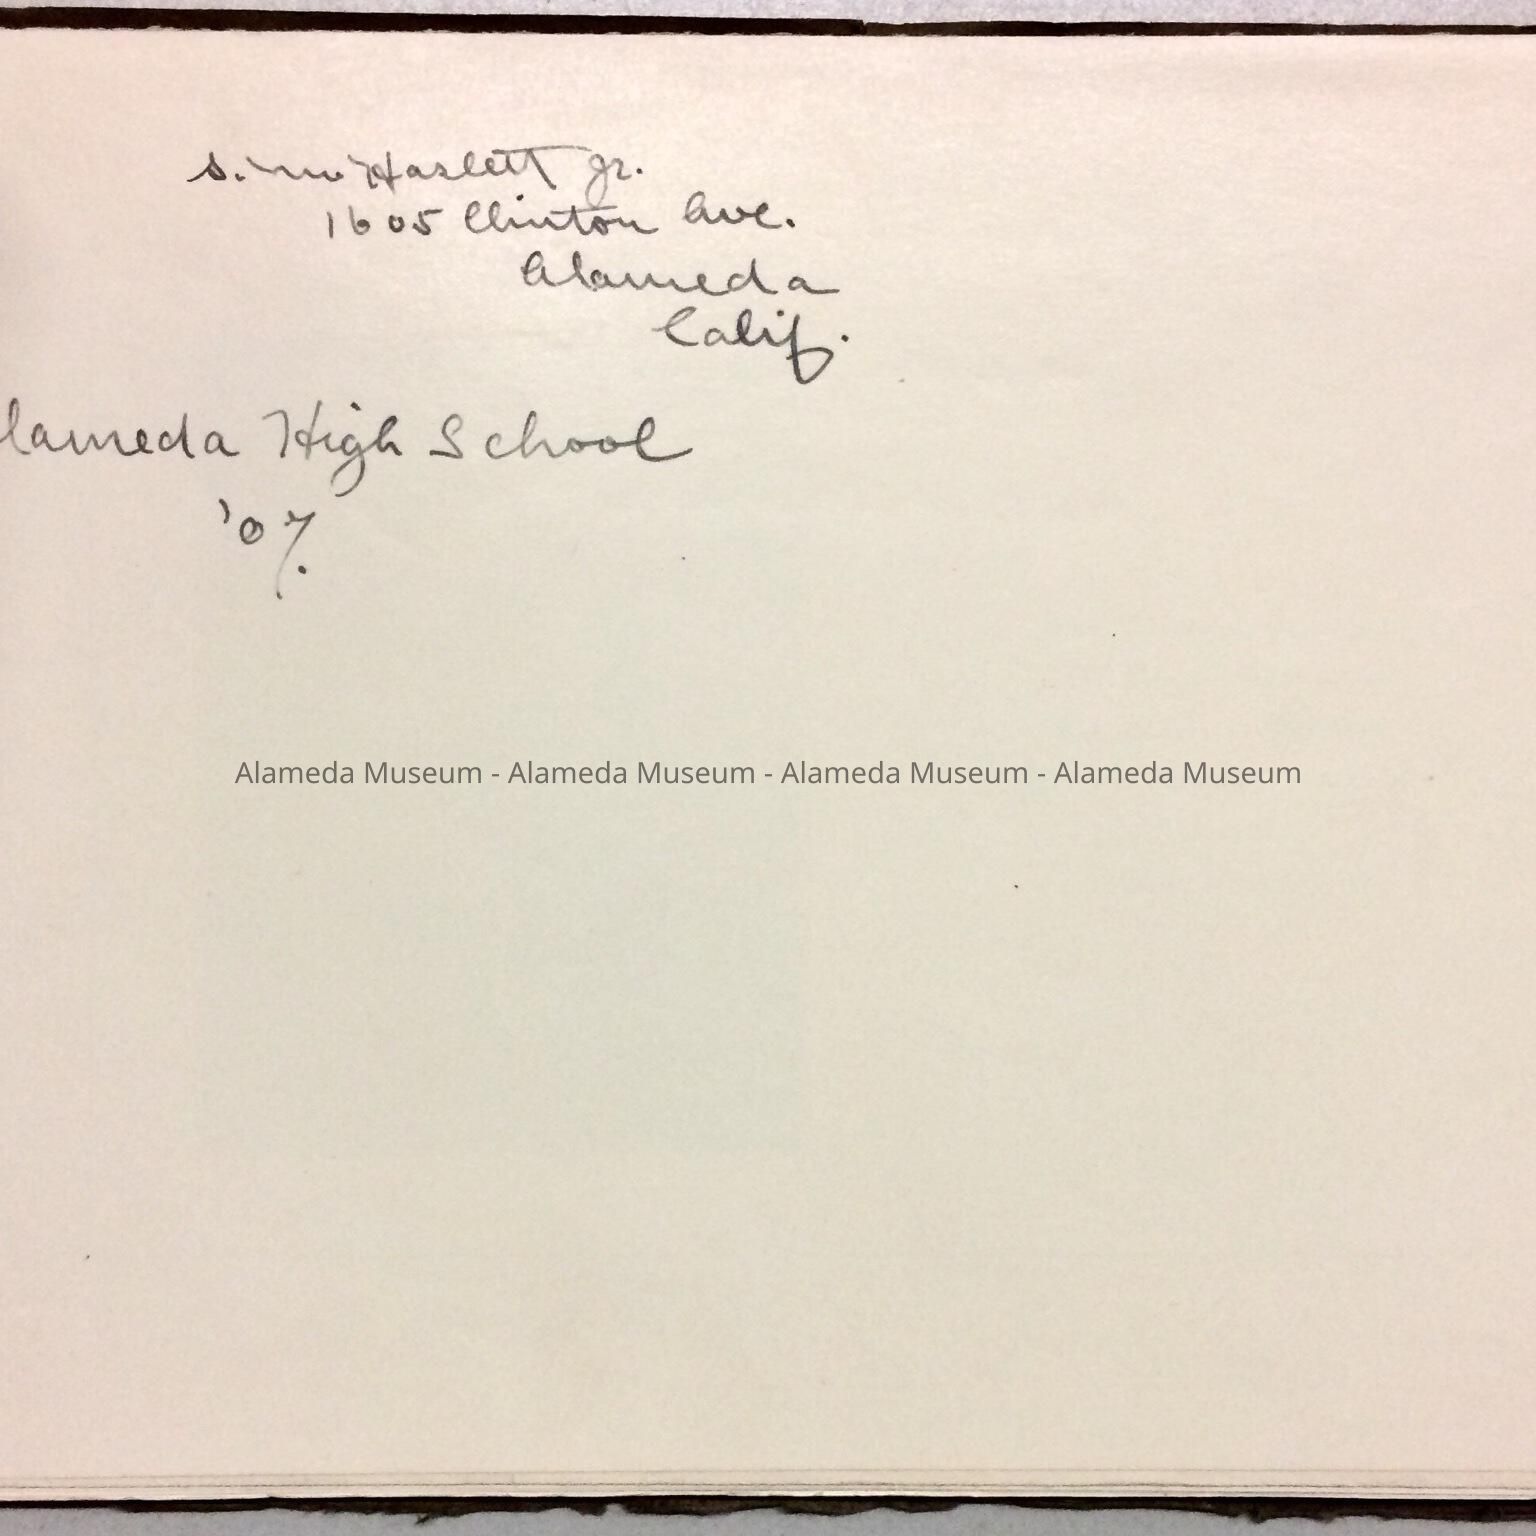 S. M. Haslett Jr.
1605 Clinton Ave.
Alameda
Calif.
lameda High School
'07.
Alameda Museum - Alameda Museum - Alameda Museum - Alameda Museum